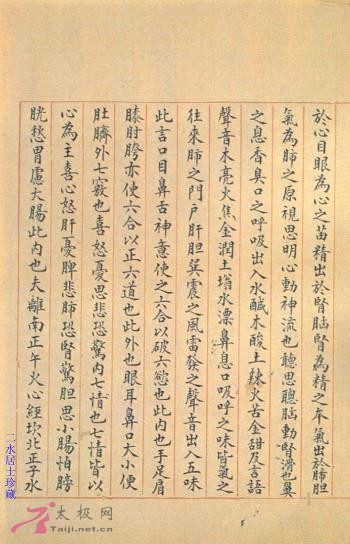 於心目眼為心之苗精出於腎腦腎為精之本氣出於肺胆
氣為肺之原視思明心動神流也聽思聰腦動腎滑也鼻
之息香臭口之呼吸出入水鹹木酸土辣火苦金甜及言語
聲音木亮火焦金潤土塕水漂鼻息口吸呼之味皆氣之
往來肺之門戶肝胆巽震之風雷發之聲音出入五味
此言口目鼻舌神意使之六合以破六慾也此內也手足肩
膝肘胯亦使六合以正六道也此外也眼耳鼻口大小便
肚臍外七竅也喜怒憂思悲恐驚內七情也七情皆以
心為主喜心怒肝憂脾悲肺恐腎驚胆思小腸怕膀
胱愁胃慮大腸此內也夫離南正午火心經坎北正子水
二水居士珍藏
太极网
Taiji.net.cn